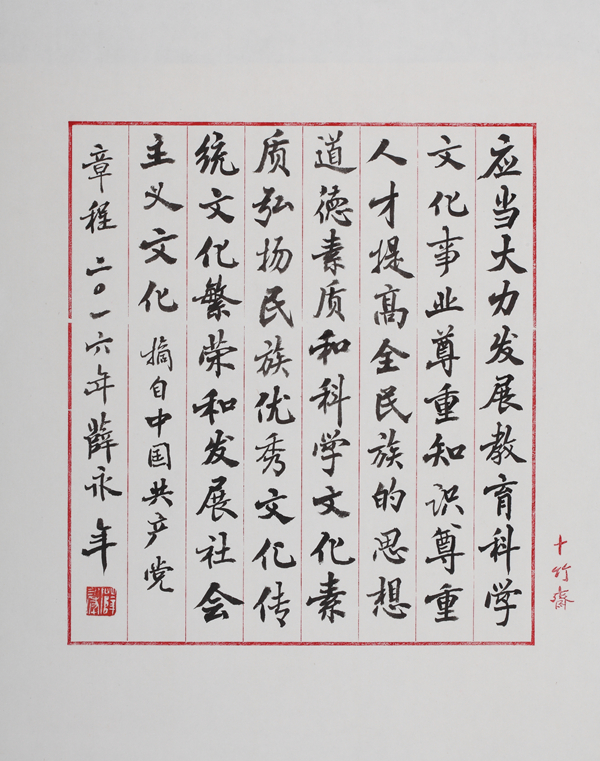 应当大力发展教育科学
文化事业尊重知识尊重
人才提高全民族的思想
道德素质和科学文化素
质弘扬民族优秀文化传
统文化繁荣和发展社会
主义文化 摘自中国共产党
章程 二〇一六年 薛永年
十竹齋